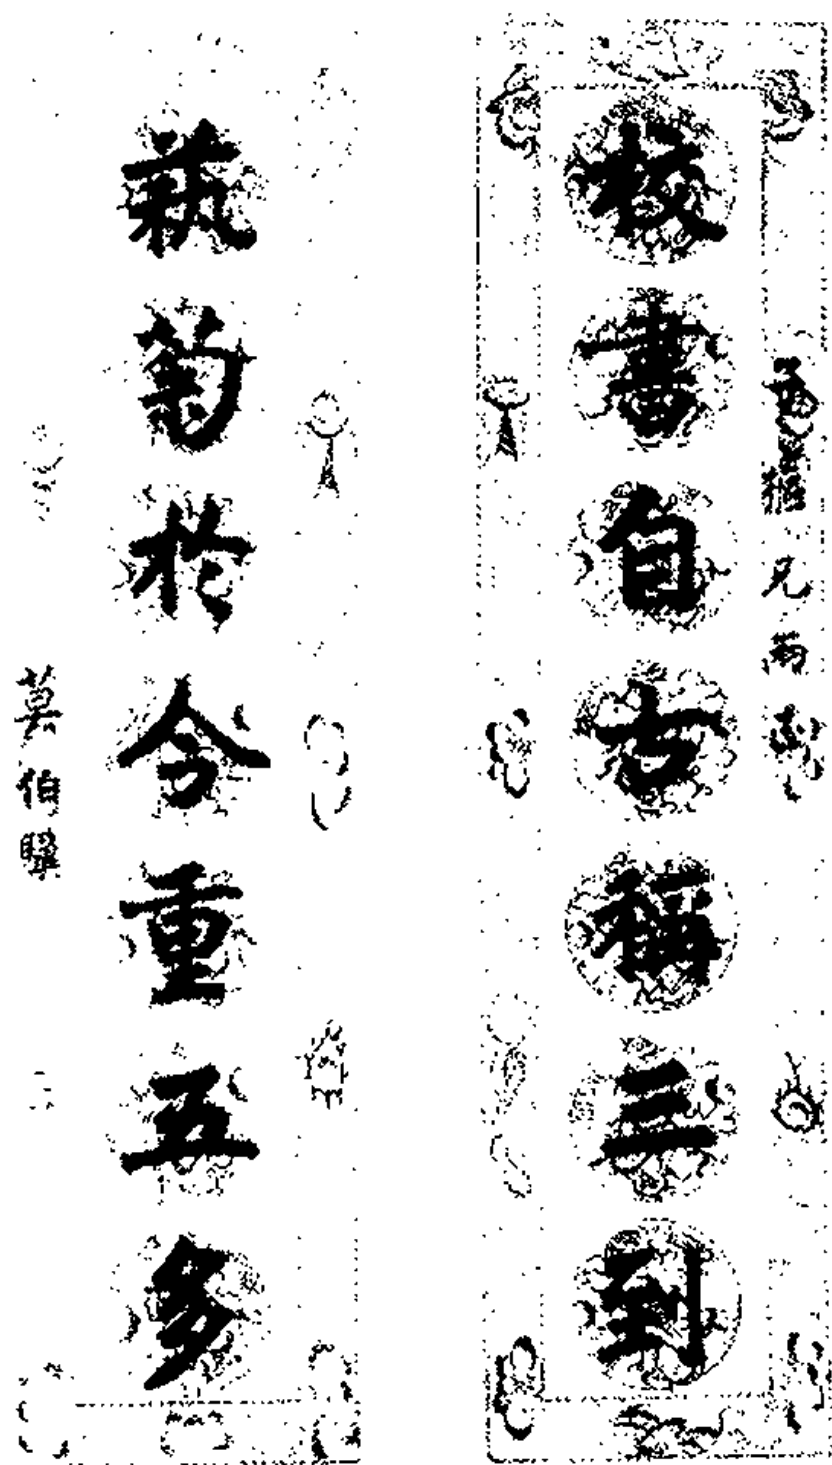 校書自古稱三到
兄
蓺菊於今重五多
莫伯驥